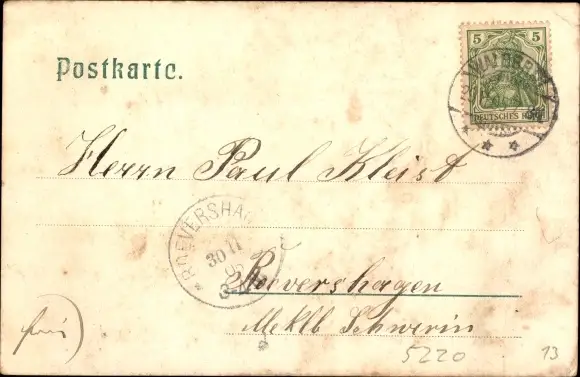 Postkarte.
5 5
DEUTSCHES
Herrn Paul Kleist
ROEVERSHAG
30 11
Roevershagen
Meklb Schwerin
5220
13